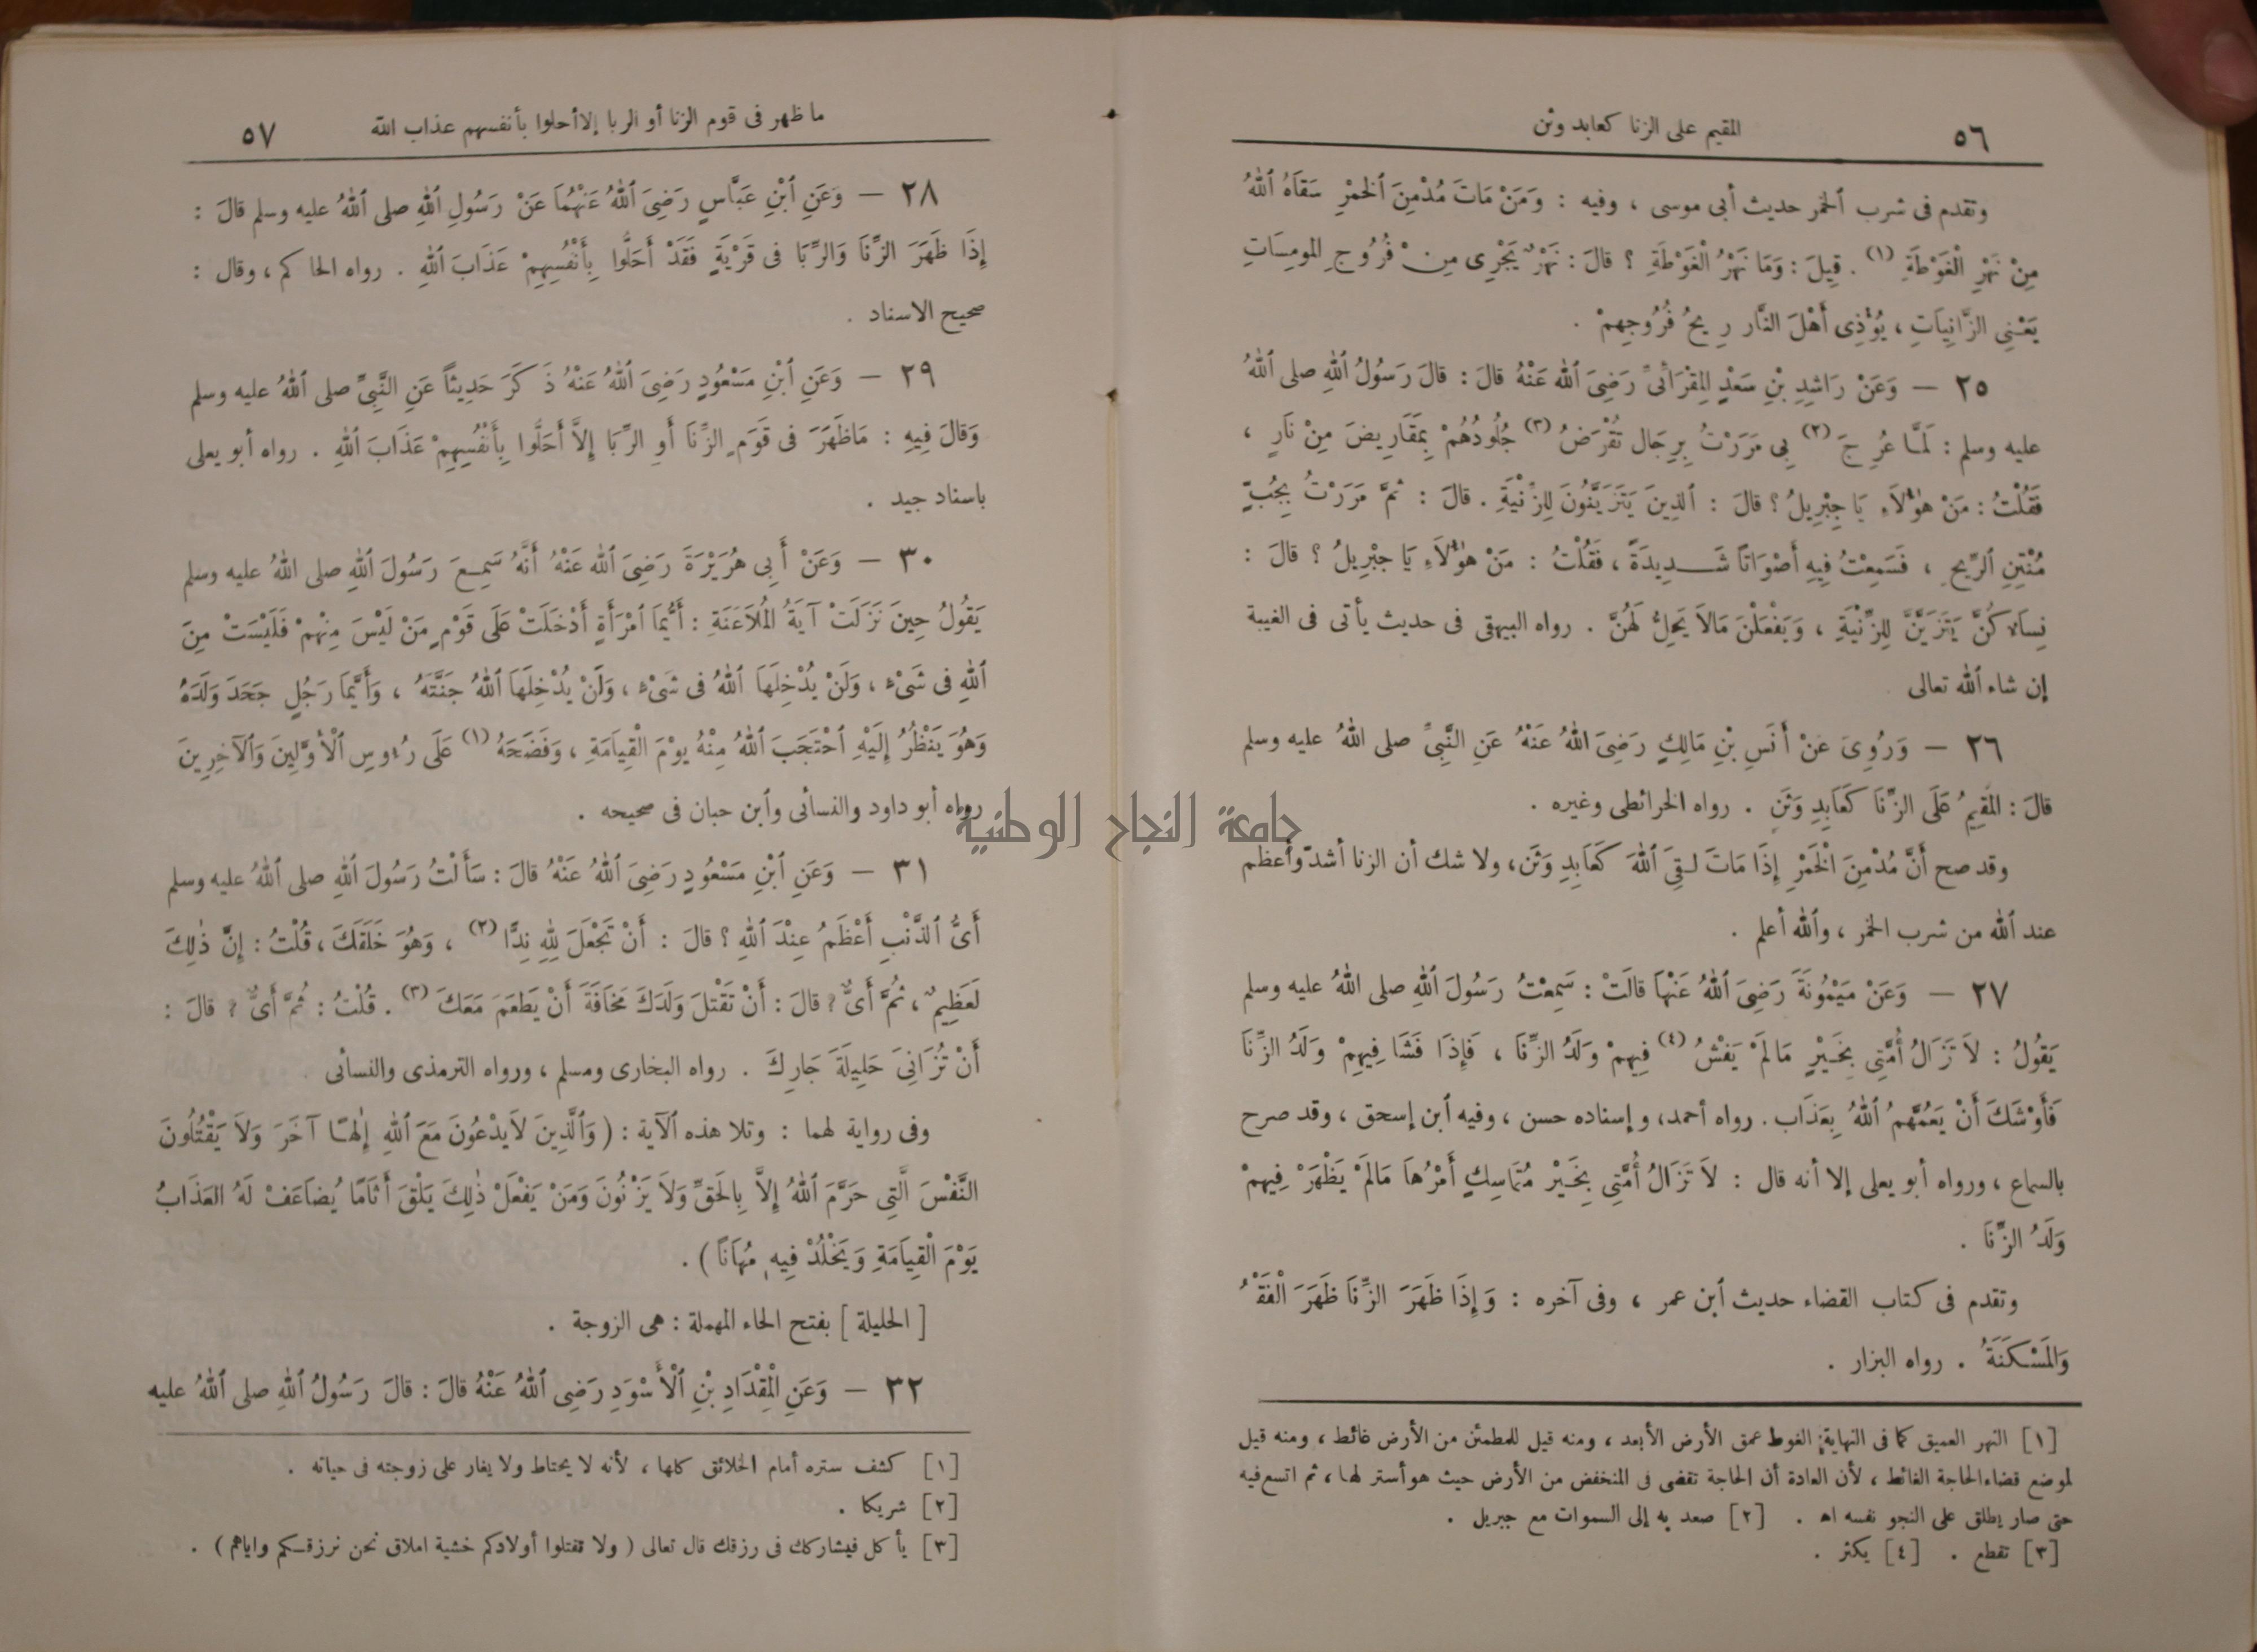 ٥٦
المقيم على الزنا كعابد وثن
وتقدم فى شرب الخمر حديث أبى موسى ، وفيه : وَمَنْ مَاتَ مُدْمِنَ ٱلْخَمْرِ سَقَاهُ ٱللهُ
مِنْ نَهْرِ الْغَوْطَةِ (١) . قِيلَ : وَمَا نَهْرُ الْغَوْطَةِ ؟ قالَ : نَهْرٌ يَجْرِى مِنْ فُرُوجِ المومِسَاتِ
يَعْنِى الزَّانِيَاتِ ، يُؤْذِى أَهْلَ النَّارِ رِيحُ فُرُوجِهِمْ .
٢٥ — وَعَنْ رَاشِدِ بْنِ سَعْدٍ المِقْرَائىِّ رَضِىَ ٱلله عَنْهُ قالَ : قالَ رَسُولُ ٱللهِ صلى ٱللهُ
عليه وسلم : لَمَّا عُرِجَ (٢) بِى مَرَرْتُ بِرِجَالٍ تُقْرَضُ (٣) جُلُودُهُمْ بِمَقَارِيضَ مِنْ نَارٍ ،
فَقُلْتُ : مَنْ هٰؤُلاَءِ يَا جِبْرِيلُ ؟ قالَ : ٱلذِينَ يَتَزَيَّنُونَ لِلزِّنْيَةِ . قالَ : ثمَّ مَرَرْتُ بِجُبٍّ
مُنْتِنِ ٱلرِّيحِ ، فَسَمِعْتُ فِيهِ أَصْوَاتاً شَدِيدَةً ، فَقُلْتُ : مَنْ هٰؤُلاَءِ يَا جبْرِيلُ ؟ قالَ :
نِسَاءٌ كُنَّ يَتَزَيَّنَّ لِلزِّنْيَةِ ، وَيَفْعَلْنَ مَالاَ يَحِلُّ لَهُنَّ . رواه البيهقى فى حديث يأتى فى الغيبة
إن شاء ٱلله تعالى
٢٦ — وَرُوِىَ عَنْ أَنَسِ بْنِ مَالِكٍ رَضِىَ ٱللهُ عَنْهُ عَنِ النَّبِىِّ صلى ٱللهُ عليه وسلم
قالَ : المُقِيمُ عَلَى الزِّنَا كَعَابِدِ وَثَنٍ . رواه الخرائطى وغيره .
وقد صح أَنَّ مُدْمِنَ الْخَمْرِ إِذَا مَاتَ لَقِىَ ٱللهَ كَعَابِدِ وَثَنٍ ، ولا شك أن الزنا أشدّ وأعظم
عند ٱلله من شرب الخمر ، وٱلله أعلم .
٢٧ — وَعَنْ مَيْمُونَةَ رَضِىَ ٱللهُ عَنْهَا قالَتْ : سَمِعْتُ رَسُولَ ٱللهِ صلى ٱللهُ عليه وسلم
يَقُولُ : لاَ تَزَالُ أُمَّتِى بِخَيْرٍ مَالَمْ يَفْشُ (٤) فِيهِمْ وَلَدُ الزِّنَا ، فَإِذَا فَشَا فِيهِمْ وَلَدُ الزِّنَا
فَأَوْشَكَ أَنْ يَعُمَّهُمُ ٱللهُ بِعَذَابٍ . رواه أحمد، وإسناده حسن ، وفيه ٱبن إسحق ، وقد صرح
بالسماع ، ورواه أبو يعلى إلا أنه قال : لاَ تَزَالُ أُمَّتِى بِخَيْرٍ مُتَمَاسِكٍ أَمْرُهَا مَالَمْ يَظْهَرْ فِيهِمْ
وَلَدُ الزِّنَا .
وتقدم فى كتاب القضاء حديث ٱبن عمر ، وفى آخره : وَإِذَا ظَهَرَ الزِّنَا ظَهَرَ الْفَقْرُ
وَالمَسْكَنَةُ . رواه البزار .
[١] النهر العميق كما فى النهاية: الغوط عمق الأرض الأبعد ، ومنه قيل للمطمئن من الأرض غائط ، ومنه قيل
لموضع قضاء الحاجة الغائط ، لأن العادة أن الحاجة تقضى فى المنخفض من الأرض حيث هو أستر لها ، ثم اتسع فيه
حتى صار يطلق على النجو نفسه اه . [٢] صعد به إلى السموات مع جبريل .
[٣] تقطع . [٤] يكثر .
ما ظهر فى قوم الزنا أو الربا إلا أحلوا بأنفسهم عذاب الله
٥٧
٢٨ — وَعَنِ ٱبْنِ عَبَّاسٍ رَضِىَ ٱللهُ عَنْهُمَا عَنْ رَسُولِ ٱللهِ صلى ٱللهُ عليه وسلم قالَ :
إِذَا ظَهَرَ الزِّنَا وَالرِّبَا فى قَرْيَةٍ فَقَدْ أَحَلُّوا بِأَنْفُسِهِمْ عَذَابَ ٱللهِ . رواه الحاكم ، وقال :
صحيح الاسناد .
٢٩ — وَعَنِ ٱبْنِ مَسْعُودٍ رَضِىَ ٱللهُ عَنْهُ ذَكَرَ حَدِيثاً عَنِ النَّبِىِّ صلى ٱللهُ عليه وسلم
وَقالَ فِيهِ : مَاظَهَرَ فى قَوْمٍ الزِّنَا أَوِ الرِّبَا إِلاَّ أَحَلُّوا بِأَنْفُسِهِمْ عَذَابَ ٱللهِ . رواه أبو يعلى
باسناد جيد .
٣٠ — وَعَنْ أَبِى هُرَيْرَةَ رَضِىَ ٱلله عَنْهُ أَنَّهُ سَمِعَ رَسُولَ ٱللهِ صلى اللهُ عليه وسلم
يَقُولُ حِينَ نَزَلَتْ آيَةُ المُلاَعَنَةِ : أَيُّمَا ٱمْرَأَةٍ أَدْخَلَتْ عَلَى قَوْمٍ مَنْ لَيْسَ مِنْهُمْ فَلَيْسَتْ مِنَ
ٱللهِ فى شَىْءٍ ، وَلَنْ يُدْخِلَهَا ٱللهُ فى شَىْءٍ ، وَلَنْ يُدْخِلَهَا ٱللهُ جَنَّتَهُ ، وَأَيُّمَا رَجُلٍ جَحَدَ وَلَدَهُ
وَهُوَ يَنْظُرُ إِلَيْهِ ٱحْتَجَبَ ٱللهُ مِنْهُ يوْمَ الْقِيَامَةِ ، وَفَضَحَهُ (١) عَلَى رُءُوسِ ٱلْأَوَّلِينَ وَٱلْآخِرِينَ
رواه أبو داود والنسائى وٱبن حبان فى صحيحه .
٣١ — وَعَنِ ٱبْنِ مَسْعُودٍ رَضِىَ ٱللهُ عَنْهُ قالَ : سَأَلْتُ رَسُولَ ٱللهِ صلى ٱللهُ عليه وسلم
أَىُّ ٱلذَّنْبِ أَعْظَمُ عِنْدَ ٱللهِ ؟ قالَ : أَنْ تَجْعَلَ لِلهِ نِدًّا (٢) ، وَهُوَ خَلَقَكَ ، قُلْتُ : إِنَّ ذٰلِكَ
لَعَظِيمٌ ، ثُمَّ أَىٌّ ؟ قالَ : أَنْ تَقْتلَ وَلَدَكَ مَخَافَةَ أَنْ يَطْعَمَ مَعَكَ (٣) . قُلْتُ : ثُمَّ أَىٌّ ؟ قالَ :
أَنْ تُزَانِىَ حَلِيلَةَ جَارِكَ . رواه البخارى ومسلم ، ورواه الترمذى والنسائى .
وفى رواية لهما : وتلا هذه ٱلآية : ( وَٱلَّذِينَ لاَيدْعُونَ مَعَ ٱللهِ إِلٰهًا آخَرَ وَلاَ يَقْتُلُونَ
النَّفْسَ الَّتِى حَرَّمَ ٱللهُ إِلاَّ بِالْحَقِّ وَلاَ يَزْنُونَ وَمَنْ يَفْعَلْ ذٰلِكَ يَلْقَ أَثَامًا يُضَاعَفْ لَهُ العَذَابُ
يَوْمَ الْقِيَامَةِ وَيَخْلُدْ فِيهِ مُهَانًا ) .
[ الحليلة ] بفتح الحاء المهملة : هى الزوجة .
٣٢ — وَعَنِ الْمِقْدَادِ بْنِ ٱلْأَسْوَدِ رَضِى ٱللهُ عَنْهُ قالَ : قالَ رَسُولُ ٱللهِ صلى ٱللهُ عليه
[١] كشف ستره أمام الخلائق كلها ، لأنه لا يحتاط ولا يغار على زوجته فى حياته .
[٢] شريكا .
[٣] يأكل فيشاركك فى رزقك قال تعالى ( ولا تقتلوا أولادكم خشية املاق نحن نرزقكم واياهم ) .
جامعة النجاح الوطنية